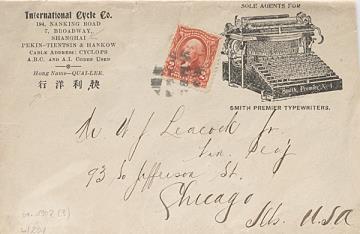 International Cycle Co.
194, NANKING ROAD
7, BROADWAY,
SHANGHAI
PEKIN-TIENTSIN & HANKOW
CABLE ADDRESS: CYCLOPS
A.B.C. AND A.I. CODES USED
Hong Name—QUAI-LEE.
行洋利快
SOLE AGENTS FOR
Smith Premier No 4
SMITH PREMIER TYPEWRITERS.
W J Leacock Jr.
93 So Jefferson St.
Chicago
Ills. USA